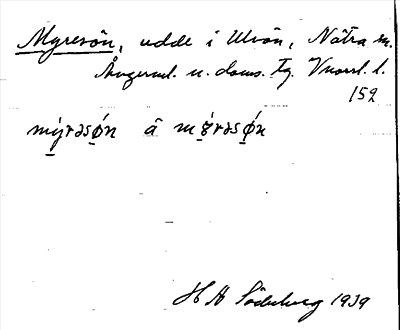 Myresön, udde i Ulvön, Nätra sn.
Ångerml. n. doms. tg. Vnorrl. l.
152
mý̱rəsǿ̱n å mɞ̱́rəsǿ̱n
H A Söderberg 1939